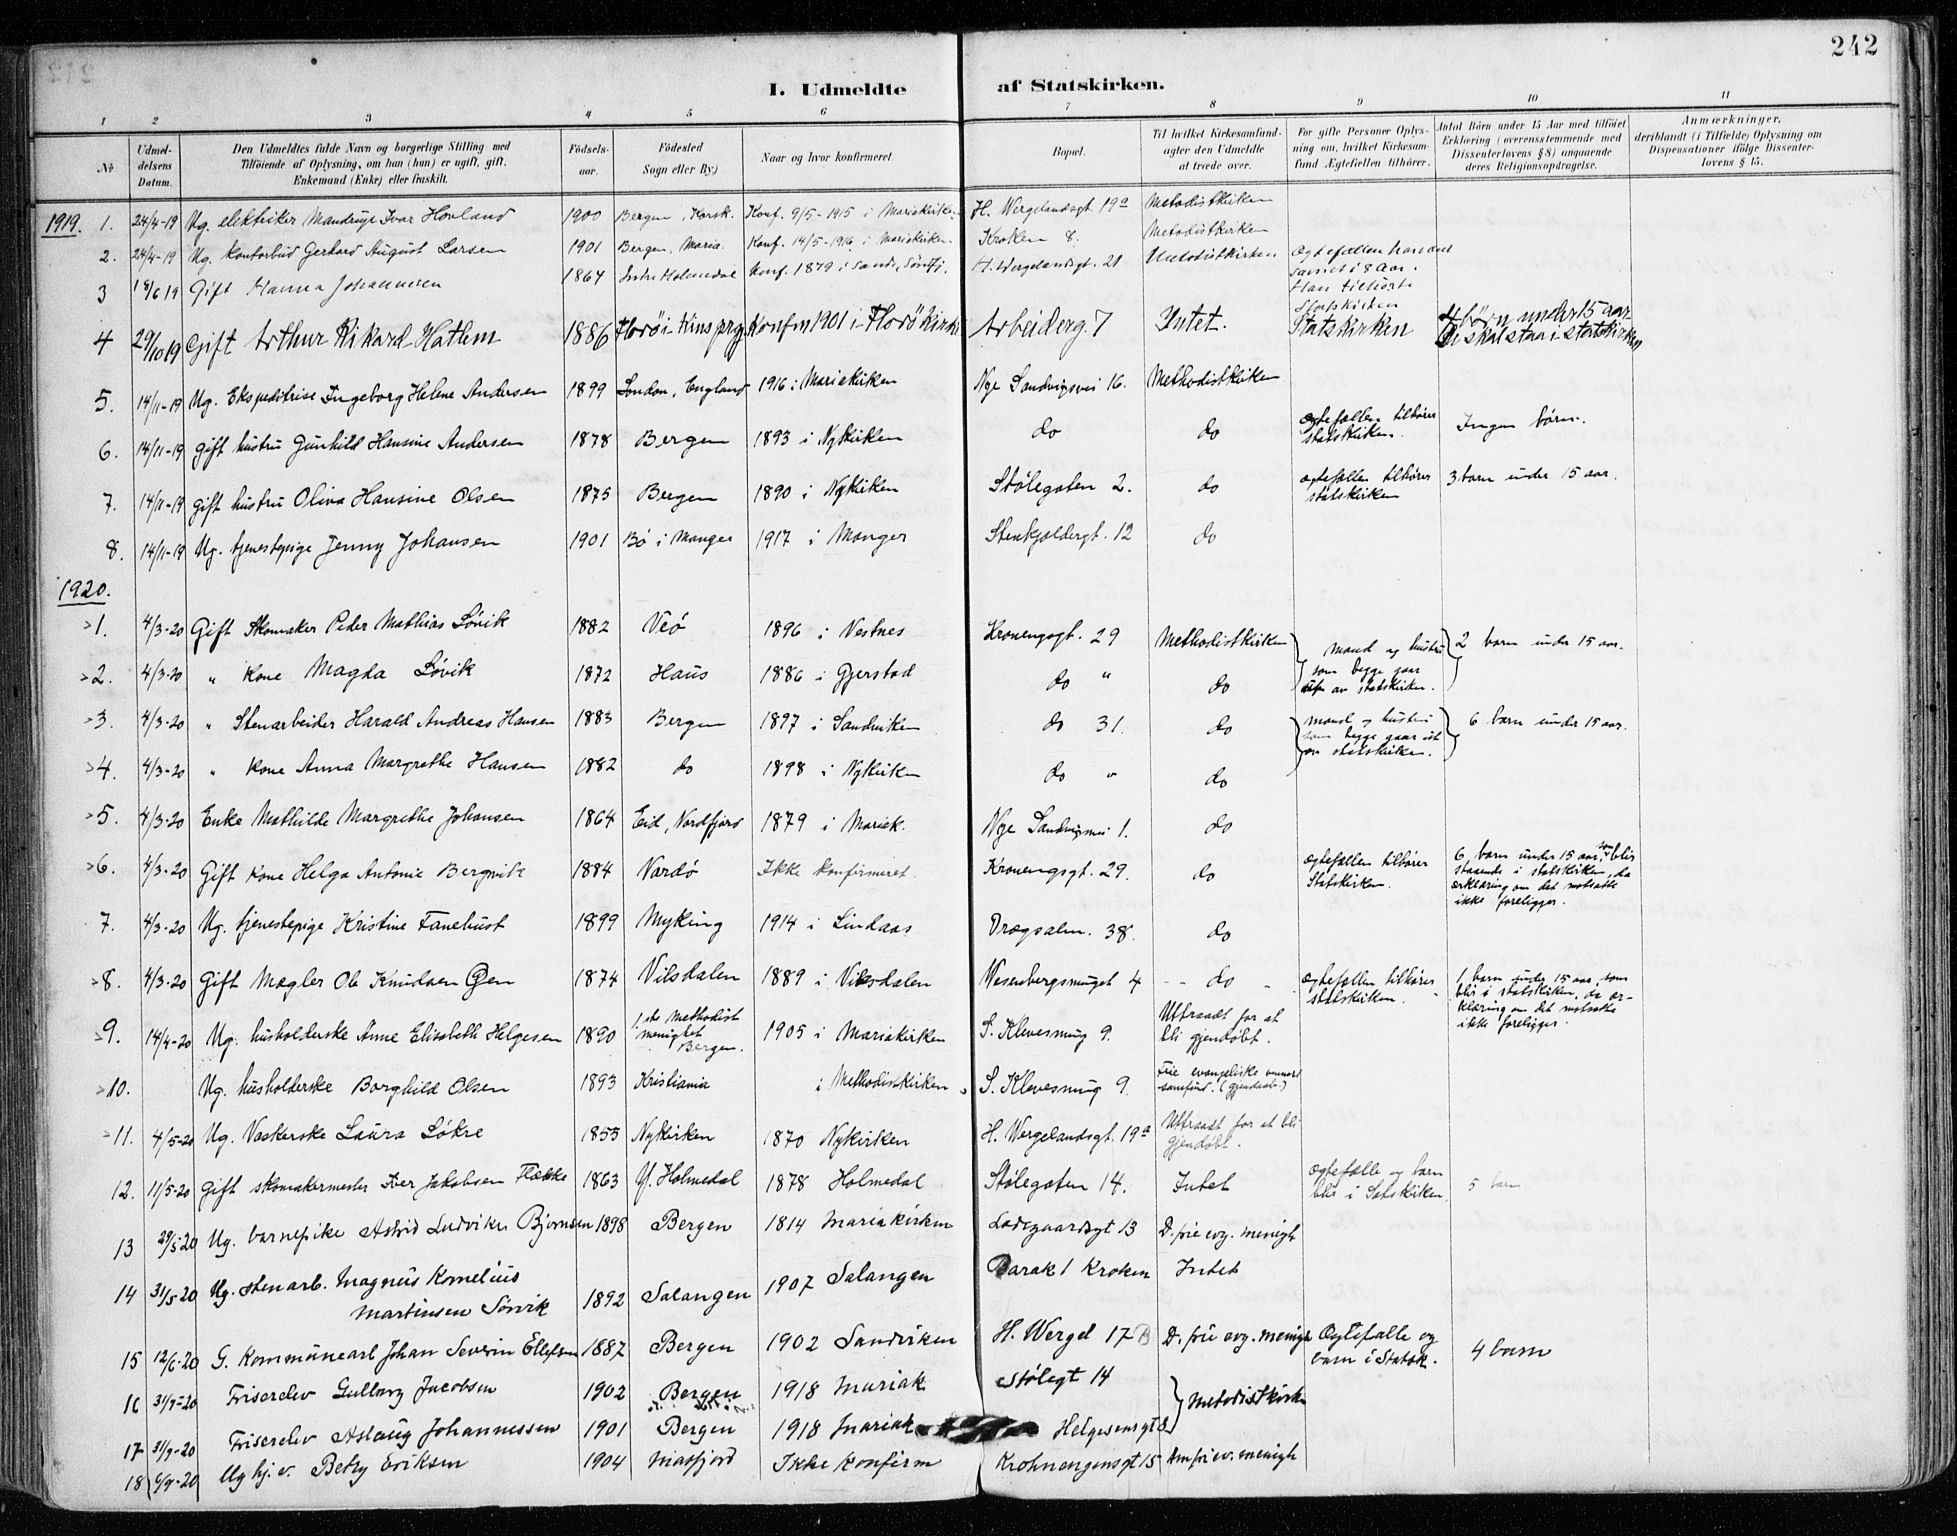 242
I. Udmeldte af Statskirken.
1 2 3 4 5 6 7 8 9 10 11
№
Udmeldelsens Datum.
Den Udmeldtes fulde Navn og borgerlige Stilling med Tilføiende af Oplysning, om han (hun) er ugift, gift, Enkemand (Enke) eller fraskilt.
Fødselsaar.
Fødested Sogn eller By.)
Naar og hvor konfirmeret.
Bopæl.
Til hvilket Kirkesamfund agter den Udmeldte at træde over.
For gifte Personer Oplysning om, hvilket Kirkesamfund Ægtefællen tilhører.
Antal Børn under 15 Aar med tilføiet Erklæring (overensstemmende med Dissenterlovens § 8) angaaende deres Religionsopdragelse.
Anmærkninger, deriblandt (i Tilfælde) Oplysning om Dispensationer ifølge Dissenterlovens § 15.
1919. 1. 24/4-19 Ug. elektriker Mandrup Ivar Hovland 1900 Bergen, Korsk. Konf. 9/5-1915 i Mariekirken H. Wergelandsgt. 19a Metodistkirken
2. 24/4-19 Ug. Kontorbud Gerhard August Larsen 1901 Bergen, Maria. Konf. 14/5-1916 i Mariekirken Kroken 8. Metodistkirken
3 18/6 19 Gift Hanna Johannesen 1864 Indre Holmedal Konf. 1879 i Sande, Søndfj. H. Wergelandsgt. 21 Metodistkirken Ægtefællen har været savnet i 8 aar. Han tilhørte Statskirken
4 29/10 19 Gift Arthur Rikard Hatlem 1886 Florø i Kins prg. Konfm 1901 i Florø kirke Arbeiderg. 7 Intet. Statskirken 4 børn under 15 aar De skal staa i statskirken
5. 14/11-19 Ug. Ekspeditrise Ingeborg Helene Andersen 1899 London, England 1916 i Mariekirken Nye Sandviksvei 16. Methodistkirken
6. 14/11-19 gift hustru Gunhild Hansine Andersen 1878 Bergen 1893 i Nykirken do do ægtefællen tilhører statskirken. Ingen børn.
7. 14/11-19 gift hustru Oliva Hansine Olsen 1875 Bergen 1890 i Nykirken Stølegaten 2. do ægtefællen tilhører statskirken 3 barn under 15 aar.
8. 14/11-19 Ug. tjenestepige Jenny Johansen 1901 Bø i Manger 1917 i Manger Stenkjeldergt. 12 do
1920.
1. 4/3-20 Gift Skomaker Peder Mathias Søvik 1882 Veø 1896 i Vestnes Kronengsgt. 29 Methodistkirken mand og hustru som begge gaar ut av statskirken. 2 barn under 15 aar.
2. 4/3-20 " Kone Magda Søvik 1872 Haus 1886 i Gjerstad do " do
3. 4/3-20 " Stenarbeider Harald Andreas Hansen 1883 Bergen 1897 i Sandviken do 31. do mand og hustru som begge gaar ut av statskirken. 6 barn under 15 aar.
4. 4/3-20 " Kone Anna Margrethe Hansen 1882 do 1898 i Nykirken do " do
5. 4/3-20 Enke Mathilde Margrethe Johansen 1864 Eid, Nordfjord 1879 i Mariek. Nye Sandviksvei 1. do
6. 4/3-20 Gift Kone Helga Antonie Bergvik 1884 Vardø Ikke konfirmeret. Kronengsgt. 29. do ægtefællen tilhører Statskirken. 6 barn under 15 aar, som blir staaende i statskirken, da erklæring om det motsatte ikke foreligger.
7. 4/3-20 Ug. tjenestepige Kristine Fanebust 1899 Myking 1914 i Lindaas Dregsalm. 38. do
8. 4/3-20 Gift Mægler Ole Knudsen Øen 1874 Vilsdalen 1889 i Viksdalen Wesenbergsmuget 4 do ægtefællen tilhører statskirken. 1 barn under 15 aar, som blir i statskirken, da erklæring om det motsatte ikke foreligger.
9. 14/4-20 Ug. husholderske Anne Elisabeth Helgesen 1890 1ste Methodist menighet Bergen. 1905 i Mariakirken S. Klevesmug 9. Uttraadt for at bli gjendøbt.
10. Ug. husholderske Borghild Olsen 1893 Kristiania i Methodistkirken S. Klevesmug 9. Frie evangeliske samfund. (gjendøbt.)
11. 4/5-20 Ug. Vaskerske Laura Løkre 1855 Nykirken 1870 Nykirken H. Wergelandsgt. 19a Uttraadt for at bli gjendøbt.
12. 11/5-20 gift skomakermester Iver Jakobsen Flekke 1863 Y. Holmedal 1878 Holmedal Stølegaten 14. Intet ægtefælle og barn blir i Satskirken. 5 barn
13 29/5-20 Ug. barnepike Astrid Ludvika Bjørnsen 1898 Bergen 1814 Mariakirken Ladegaardsgt 13 D. frie evg. menigh
14 31/5-20 Ug. stenarb. Magnus Kornelius Martinsen Sørvik 1892 Salangen 1907 Salangen Barak 1 Kroken Intet
15 12/6-20 G. Kommunearb Johan Severin Ellefsen 1887 Bergen 1902 Sandviken H. Wergel 17B D. frie evg. menigh Ægtefælle og barn i Statsk. 4 barn
16 31/7-20 Friserelev Gudborg Jacobsen 1902 Bergen 1918 Mariak Stølegt 14 Metodistkirke
17 31/7-20 Friserelev Aslaug Johannessen 1901 Bergen 1918 Mariak Helgesensgt 8
18 6/9-20 Ug hj.v. Betsy Eriksen 1904 Masfjord Ikke konfirm Krohnengensgt 15 Am fri ev. menigh